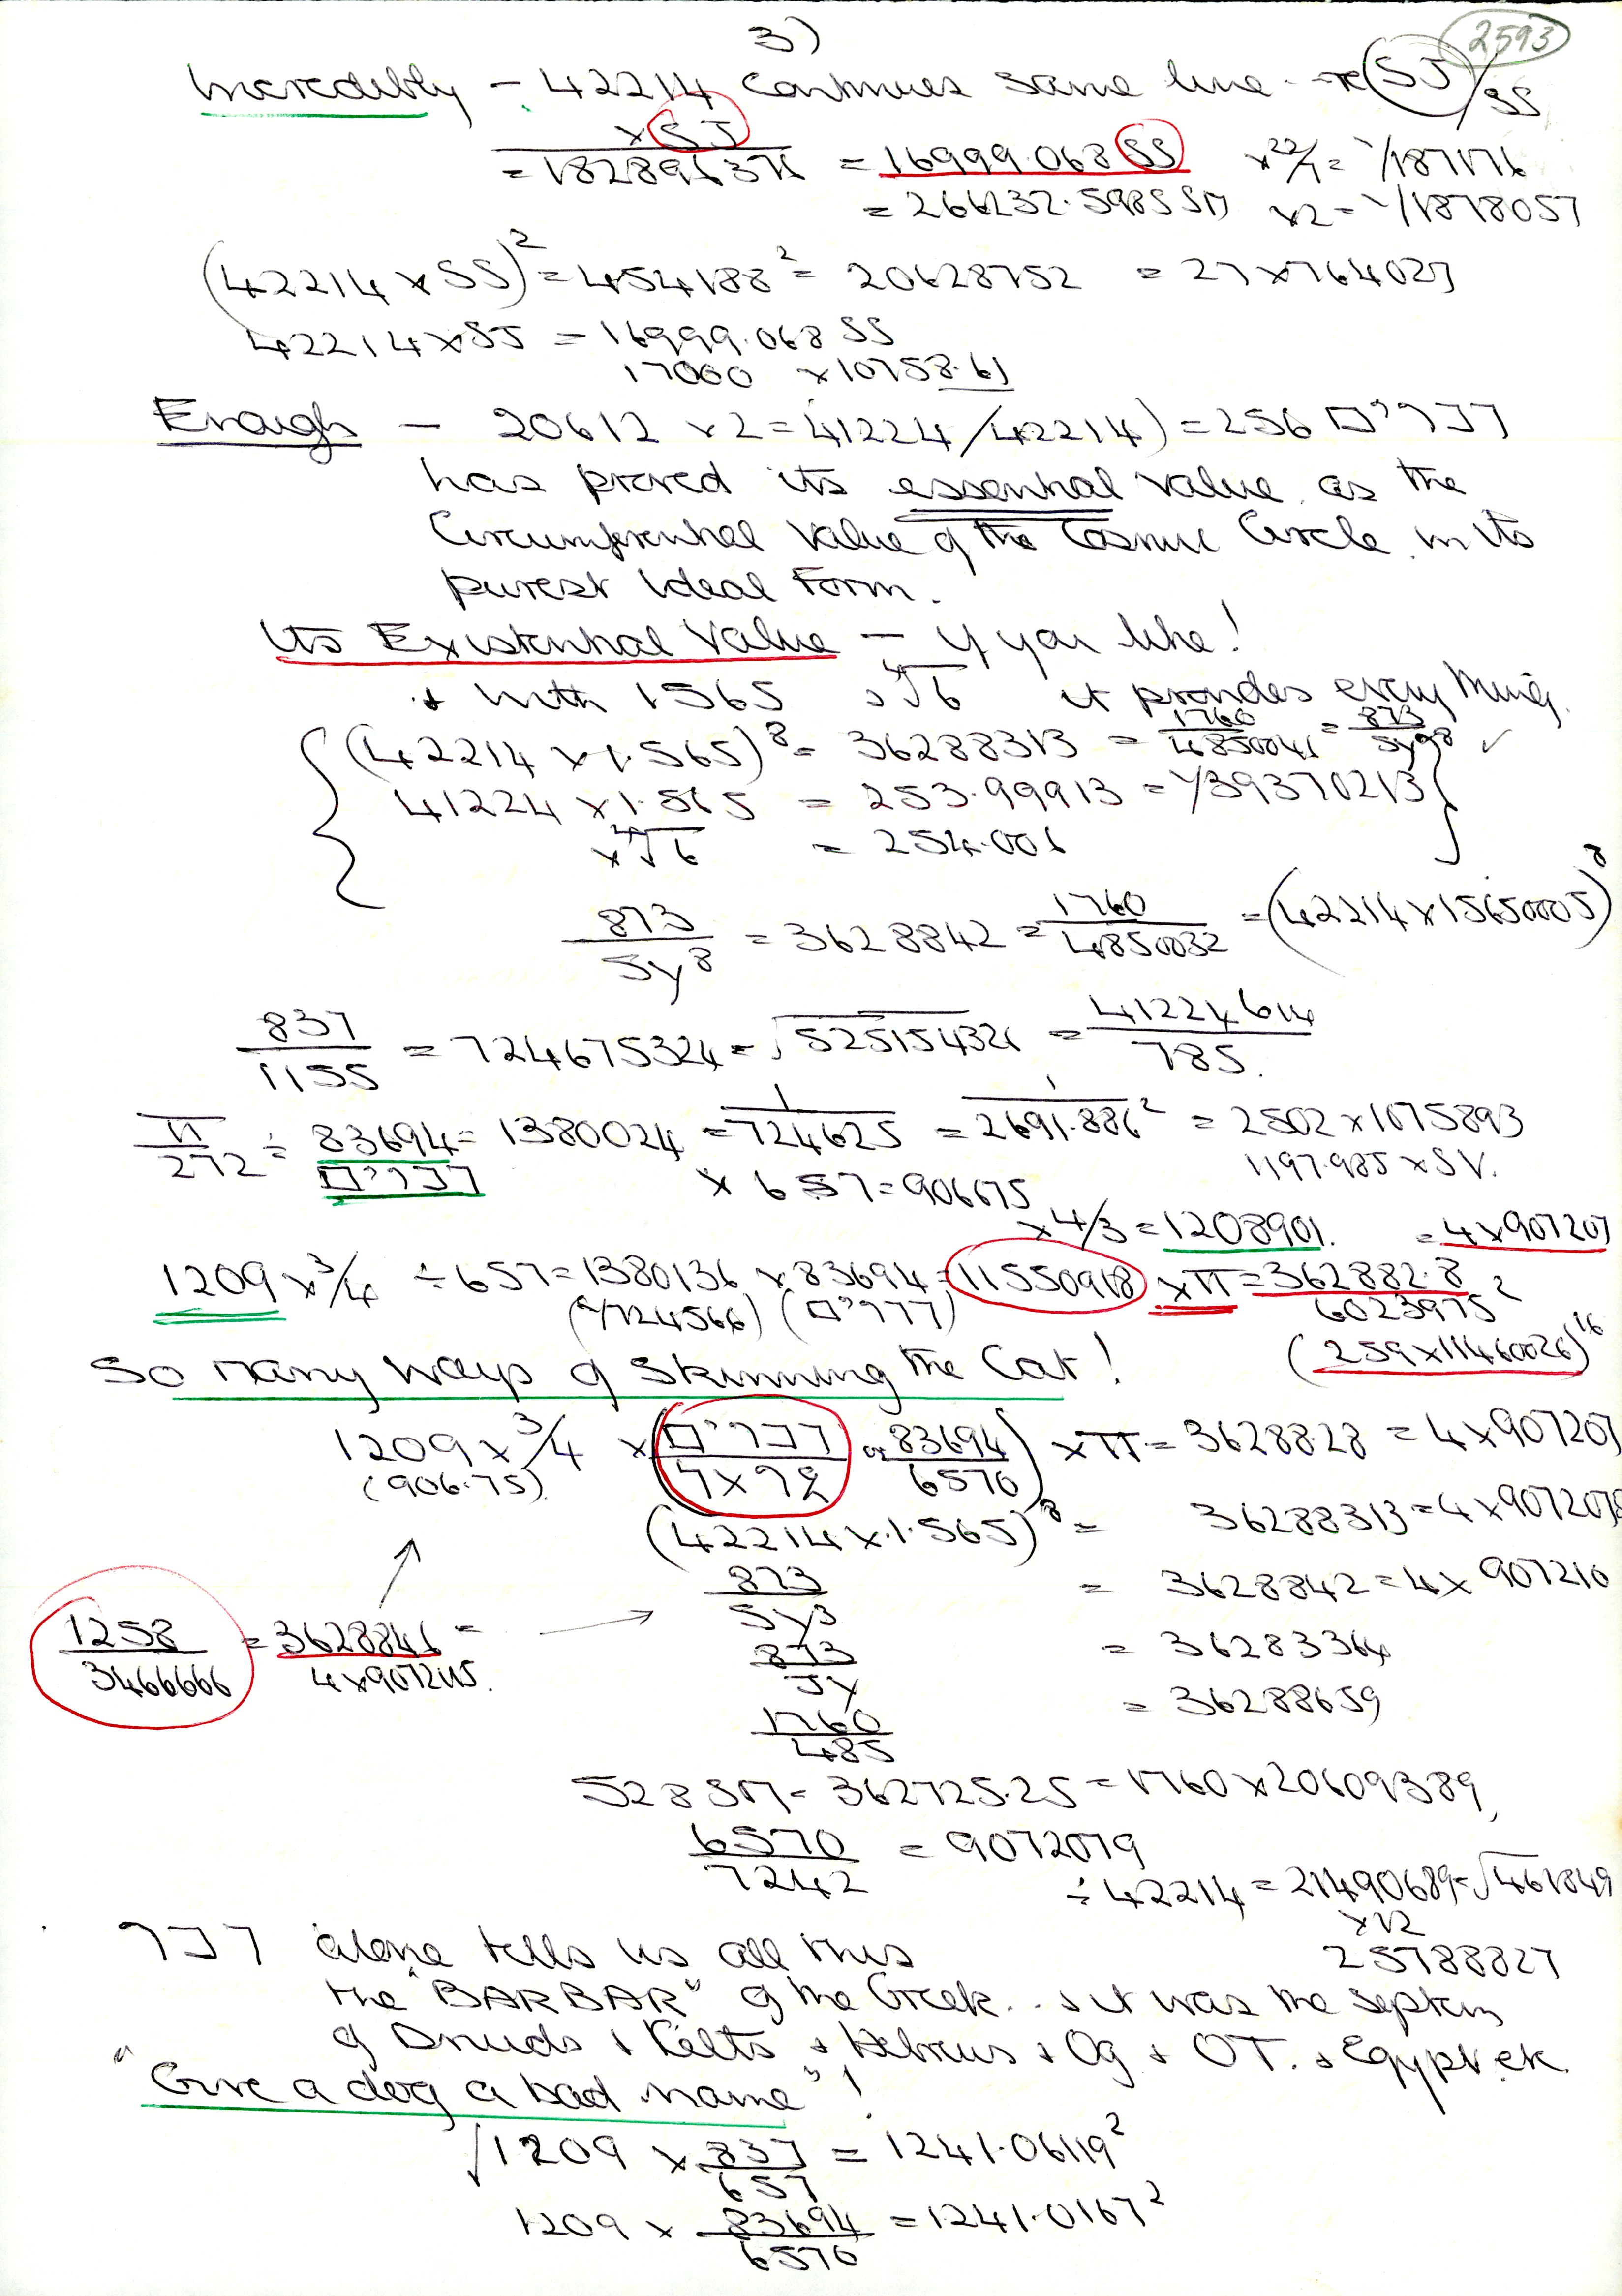 3)
2593
Incredibly - 42214 continues same line - re (SJ)/SS
× SJ
= 182896376 = 16999.068 SS ×22/7 = 1/187176
= 266232.5985 SM ×2 = 1/1878057
(42214 × SS)² = 454188² = 20628752 = 27 × 764027
42214 × SJ = 16999.068 SS
17000 × 10758.61
Enough - 20612 × 2 = 41224 / 42214) = 256 דברים
has proved its essential value as the
Circumferential Value of the Cosmic Circle in its
purest ideal Form.
Its Existential Value - if you like!
+ with 1565 & ∜6 it provides everything.
(42214 × 1.565)⁸ = 36288313 = 1760/4850041 = 873/Sy⁸ ✓
41224 × 1.565 = 253.99913 = 1/39370213
× ∜6 = 254.006
873/Sy⁸ = 3628842 = 1760/4850032 = (42214 × 15650005)⁸
837/1155 = 724675324 = √525154326 = 41224614/785.
π/272 ÷ 83694/דברים = 1380024 = 1/724625 = 1/2691.886² = 2502 × 1075893
1197.985 × SV.
× 657 = 906675
× 4/3 = 1208901. = 4 × 907207
1209 × 3/4 ÷ 657 = 1380136 × 83694 = 11550918 × π = 362882.8
(1/724566) (דברים) 6023975²
(259 × 11460026)¹⁶
So many ways of Skinning the Cat!
1209 × 3/4 × (דברים / 7×9 or 83694/6570) × π = 3628828 = 4 × 907207
(906.75)
(42214 × 1.565)⁸ = 36288313 = 4 × 9072078
873/Sy⁸ = 3628842 = 4 × 907210
1258/3466666 = 3628846 =
4 × 9072115.
873/Jy = 36283364
1760/485 = 36288659
528 SM = 362725.25 = 1760 × 20609389
6570/7242 = 9072079
÷ 42214 = 21490689 = √461849
× 12
25788827
דבר alone tells us all this
the "BARBAR" of the Greek .. & it was the system
of Druids + Kelts + Hebrews + Og + OT. + Egypt etc.
"Give a dog a bad name"!
√1209 × 837/657 = 1241.06119²
1209 × 83694/6570 = 1241.0167²